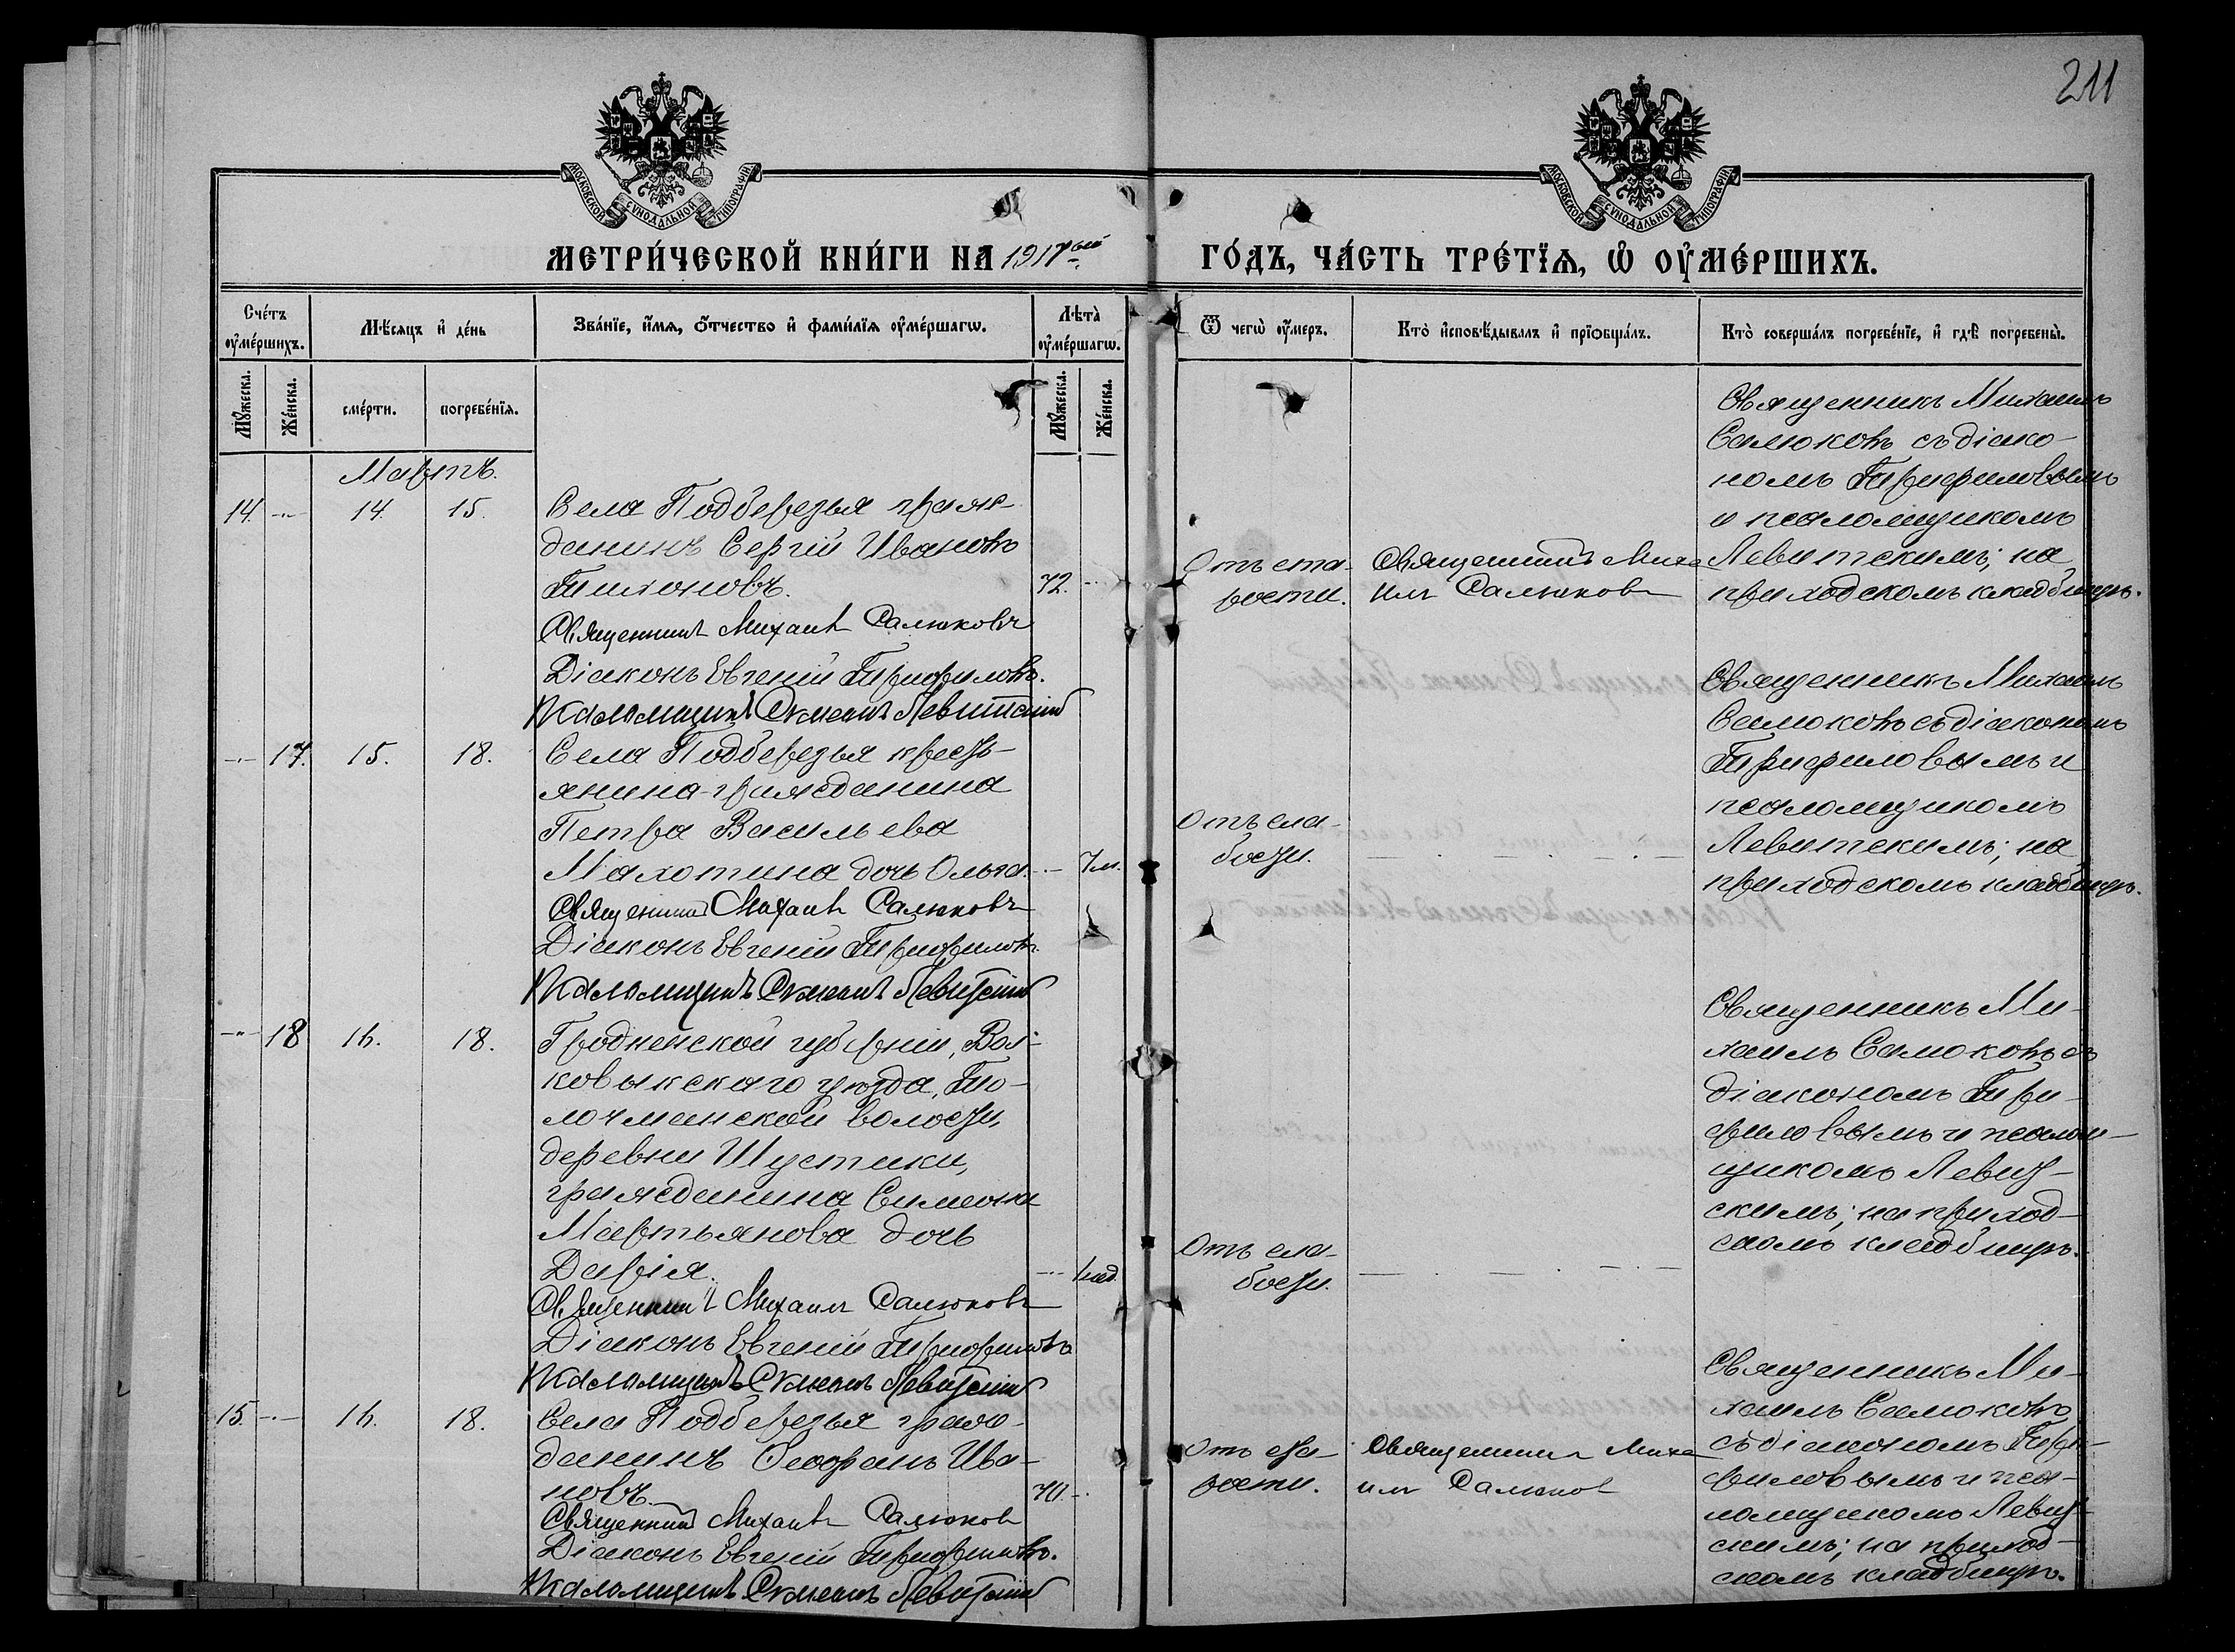 211
МОСКОВСКОЙ СѴНОДАЛЬНОЙ ТИПОГРАФІИ
МОСКОВСКОЙ СѴНОДАЛЬНОЙ ТИПОГРАФІИ
МЕТРИ́ЧЕСКОЙ КНИ́ГИ НА 1917ый ГО́ДЪ, ЧА́СТЬ ТРЕ́ТЇѦ, Ѡ҆ ОУ҆МЕ́РШИХЪ.
Сче́тъ оу҆ме́ршихъ.
Мѣ́сяцъ и҆ де́нь
Зва́нїе, и҆́мѧ, ѻ҆́тчество и҆ фами́лїѧ оу҆ме́ршагѡ.
Лѣта̀ оу҆ме́ршагѡ.
Ѿ чегѡ̀ оу҆́меръ.
Кто̀ и҆сповѣ́дывалъ и҆ прїѻбща́лъ.
Кто̀ соверша́лъ погребе́нїе, и҆ гдѣ̀ погребены̀.
Мꙋ́жеска.
Же́нска.
сме́рти.
погребе́нїѧ.
Мꙋ́жеска.
Же́нска.
Мартъ.
14. 14. 15.
Села Подберезья граж-
данинъ Сергій Ивановъ
Тихоновъ. 72.
Священникъ Михаилъ Салюковъ
Діаконъ Евгеній Трифиловъ.
Псаломщикъ Левитскій
Отъ ста-
рости.
Священникъ Миха
илъ Салюковъ
Священникъ Михаилъ
Салюковъ съ діако-
номъ Трифиловымъ
и псаломщикомъ
Левитскимъ; на
приходскомъ кладбищѣ.
17. 15. 18.
Села Подберезья кресть-
янина-гражданина
Петра Васильева
Махотина дочь Ольга. 7м.
Священникъ Михаилъ Салюковъ
Діаконъ Евгеній Трифиловъ.
Псаломщикъ Левитскій
Отъ сла-
бости.
Священникъ Михаилъ
Салюковъ съ діакономъ
Трифиловымъ и
псаломщикомъ
Левитскимъ; на
приходскомъ кладбищѣ.
18 16. 18.
Гродненской губерніи, Вол-
ковыскского уѣзда, То-
лочманской волости,
деревни Шустики,
гражданина Симеона
Мартьянова дочь
Дарія. 1нед.
Священникъ Михаилъ Салюковъ
Діаконъ Евгеній Трифиловъ
Псаломщикъ Левитскій
Отъ сла-
бости.
Священникъ Ми-
хаилъ Салюковъ съ
діакономъ Три-
филовымъ и псалом-
щикомъ Левит-
скимъ; на приход-
скомъ кладбищѣ.
15. 16. 18.
Села Подберезья граж-
данинъ Феофанъ Ива-
новъ. 70.
Священникъ Михаилъ Салюковъ
Діаконъ Евгеній Трифиловъ.
Псаломщикъ Левитскій
Отъ ста-
рости.
Священникъ Миха
илъ Салюковъ
Священникъ Ми-
хаилъ Салюковъ
съ діакономъ Три-
филовымъ и пса-
ломщикомъ Левит-
скимъ; на приход-
скомъ кладбищѣ.